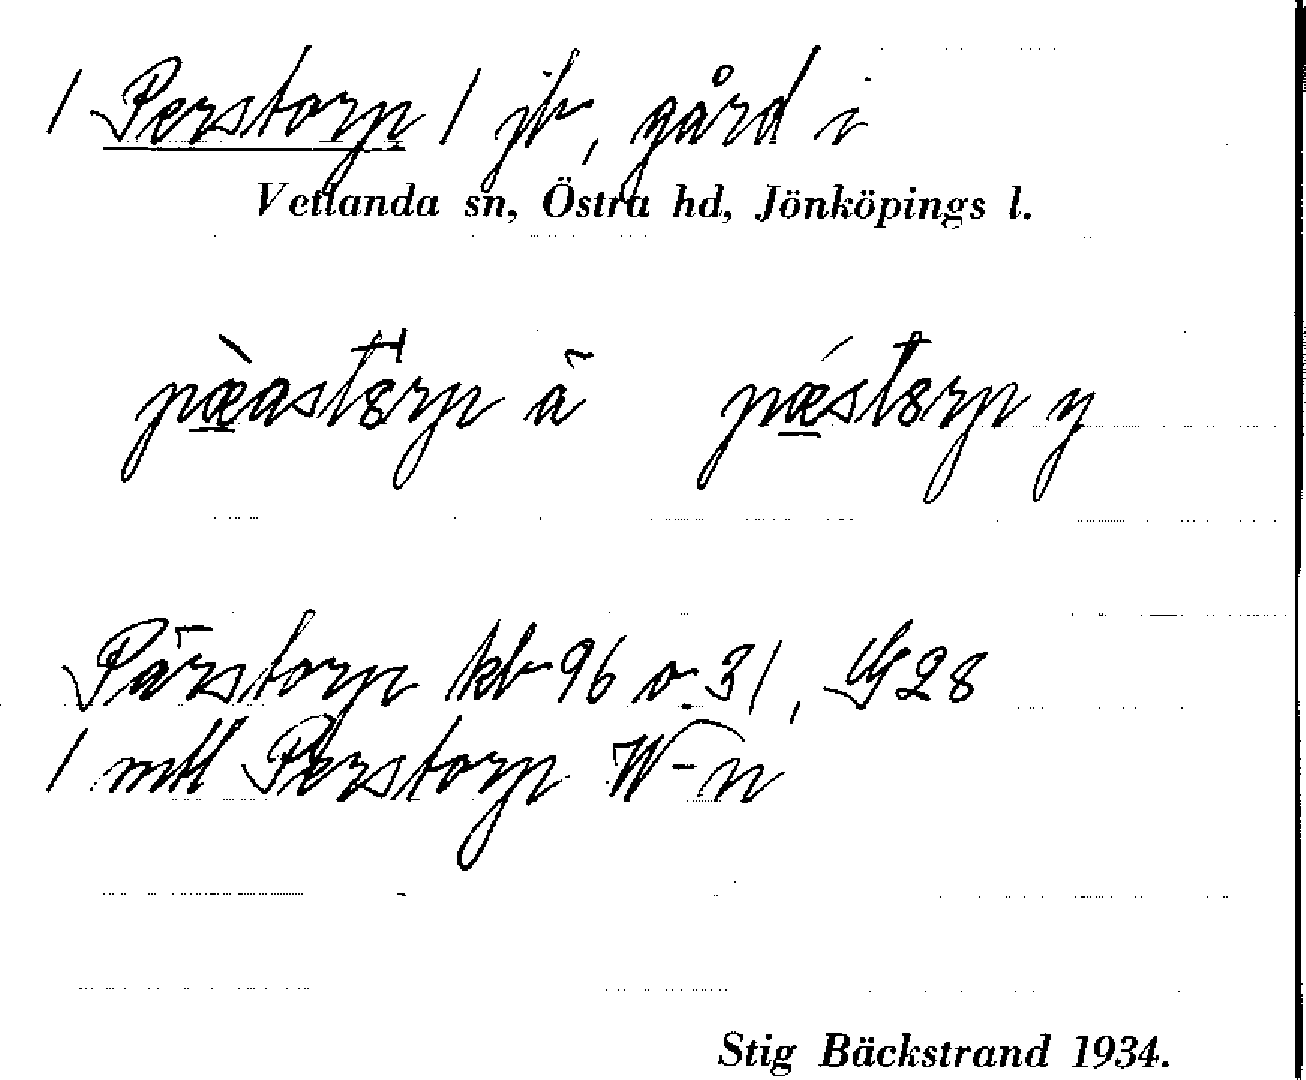 1 Perstorp 1 jb, gård i
Vetlanda sn, Östra hd, Jönköpings l.
pæ̀astorp ä pǽstorp y
Pärstorp kb 96 o. 31, G 28
1 mtl Perstorp W-n
Stig Bäckstrand 1934.